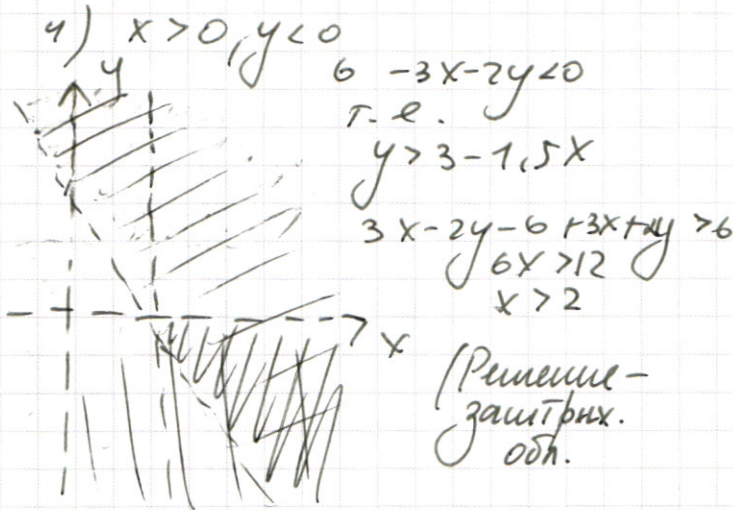 4) x > 0, y < 0
y
6 -3x-2y<0
т.е.
y > 3 - 1,5x
3x-2y-6+3x+2y >6
6x >12
x > 2
x
(Решение-
заштрих.
обл.